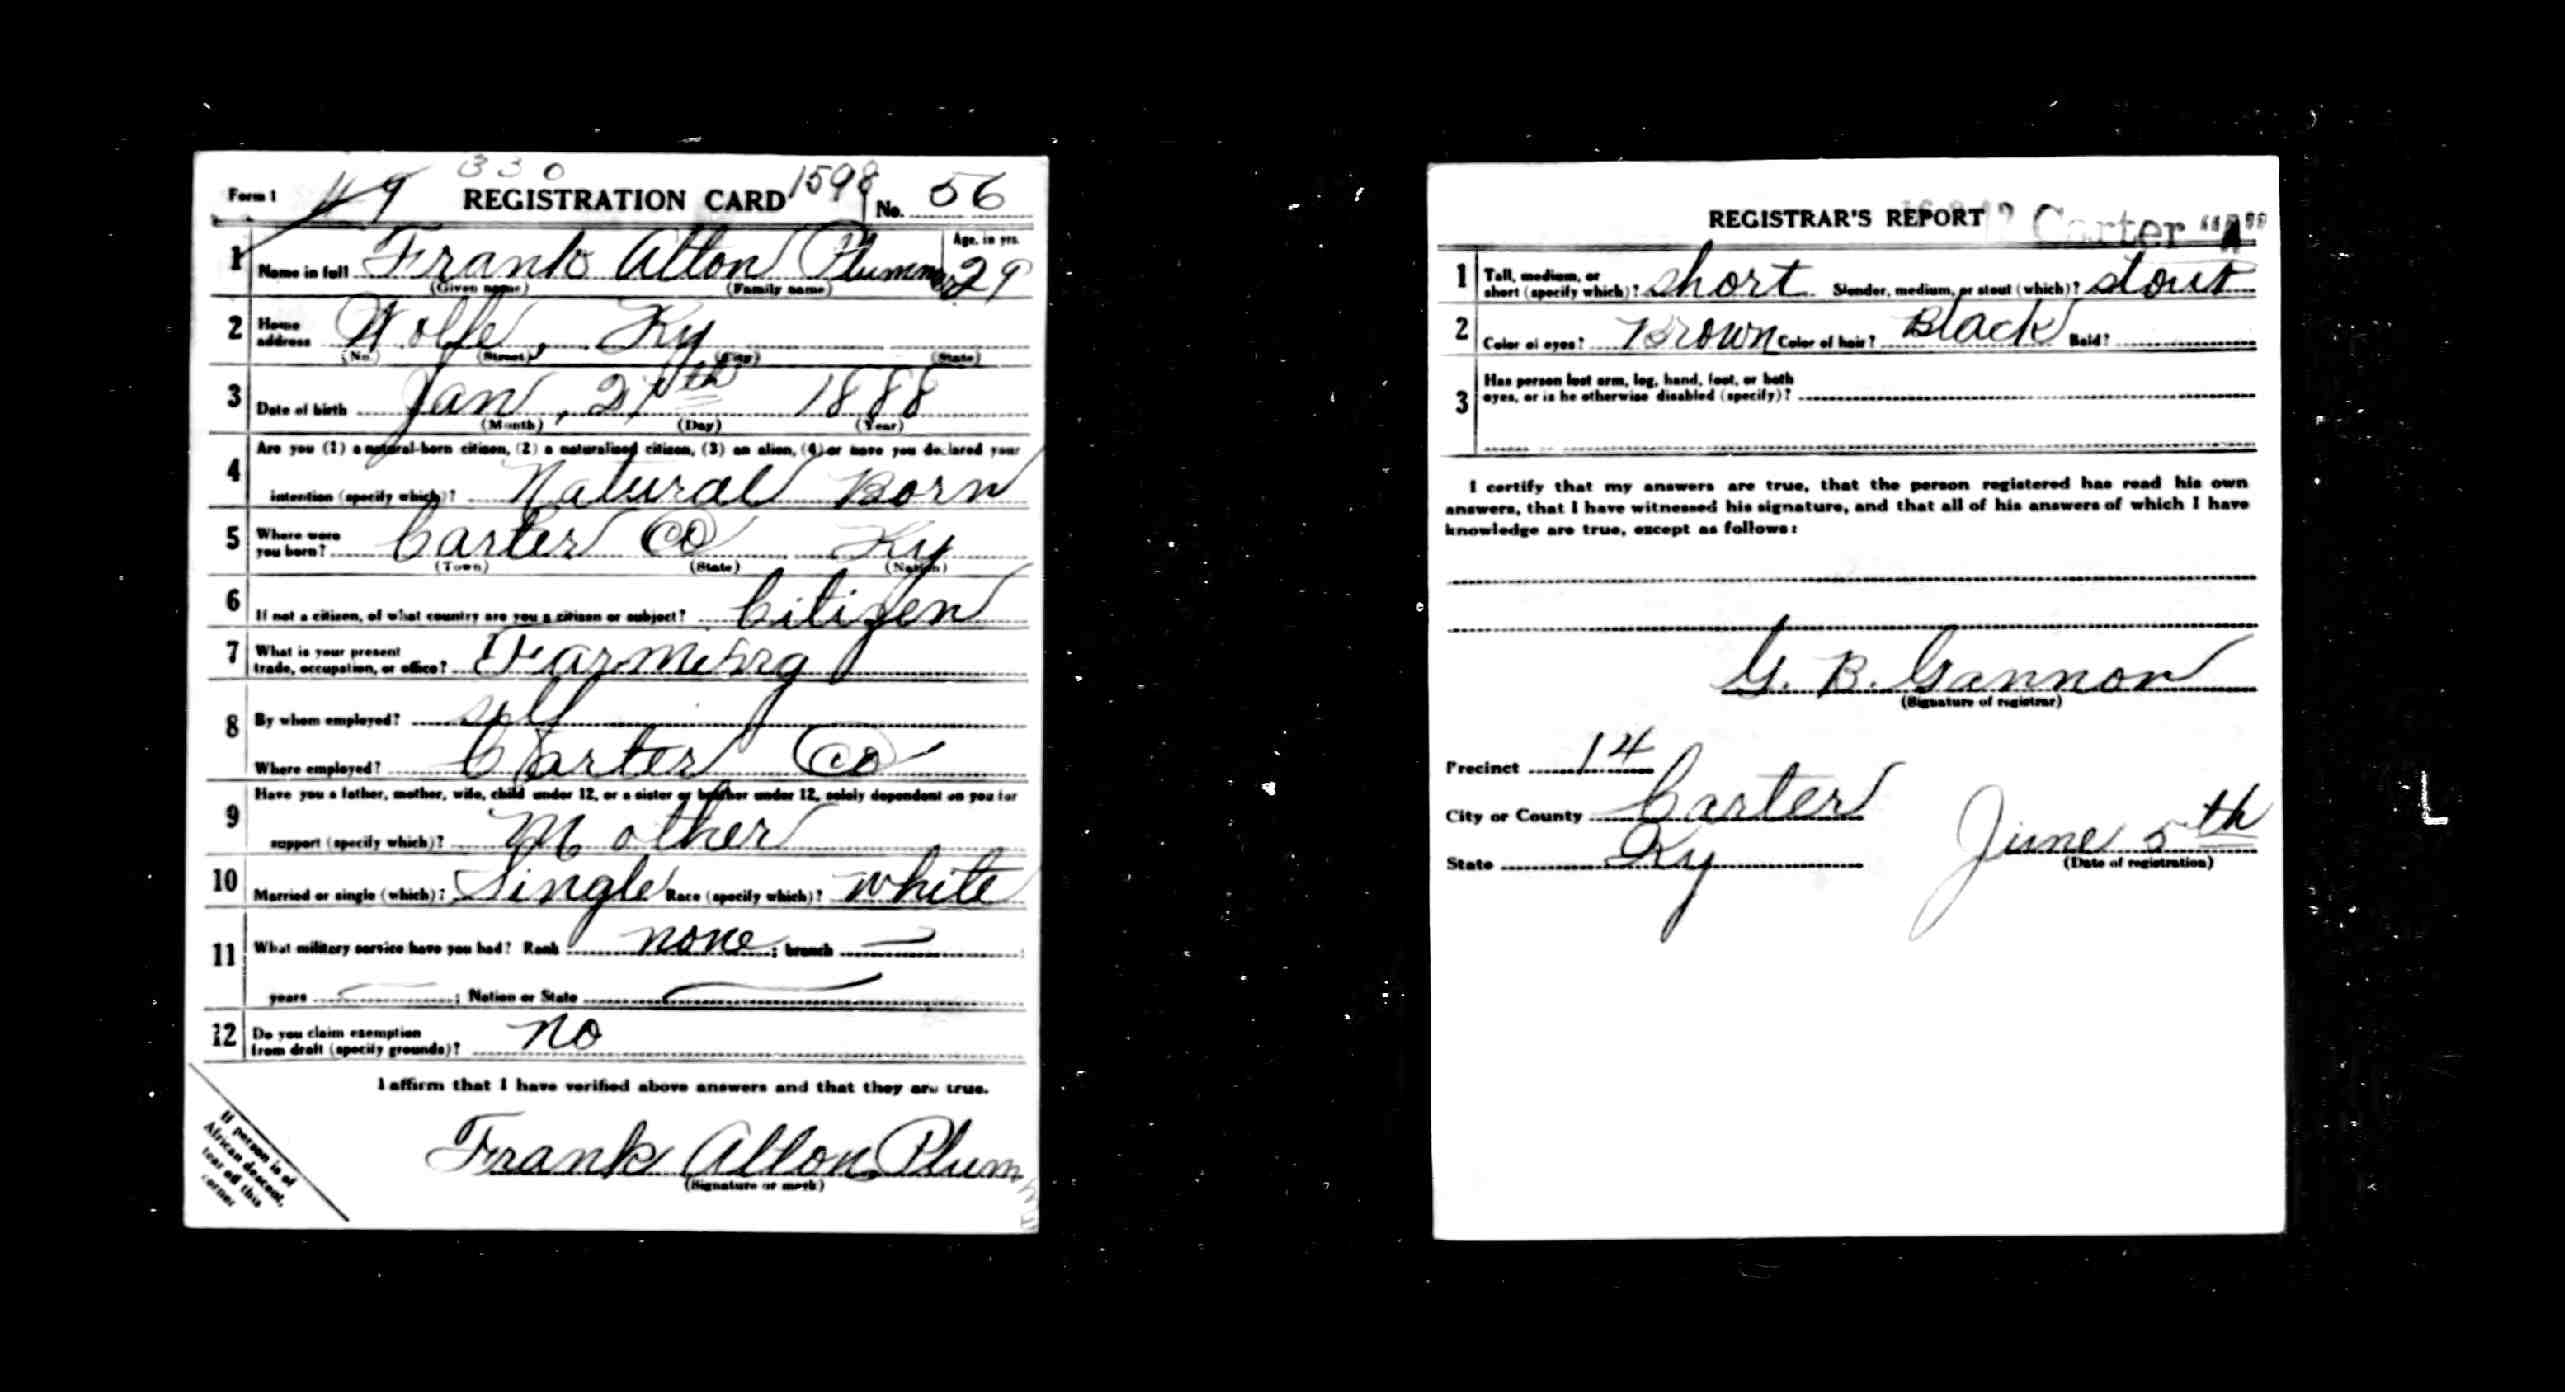 330
Form 1 49 REGISTRATION CARD 1598 No. 56
1 Name in full Frank Alton Plummer Age, in yrs. 29
(Given name) (Family name)
2 Home address Wolfe, Ky
(No.) (Street) (City) (State)
3 Date of birth Jan, th 1888
(Month) (Day) (Year)
4 Are you (1) a natural-born citizen, (2) a naturalized citizen, (3) an alien, (4) or have you declared your
intention (specify which)? Natural Born
5 Where were you born? Carter Co Ky
(Town) (State) (Nation)
6 If not a citizen, of what country are you a citizen or subject? Citizen
7 What is your present
trade, occupation, or office? Farming
8 By whom employed? self
Where employed? Carter Co
9 Have you a father, mother, wife, child under 12, or a sister or brother under 12, solely dependent on you for
support (specify which)? Mother
10 Married or single (which)? Single Race (specify which)? white
11 What military service have you had? Rank none; branch —
years — ; Nation or State —
12 Do you claim exemption
from draft (specify grounds)? no
I affirm that I have verified above answers and that they are true.
Frank Alton Plummer
(Signature or mark)
If person is of
African descent,
tear off this
corner
REGISTRAR'S REPORT Carter "A"
1 Tall, medium, or
short (specify which)? short Slender, medium, or stout (which)? stout
2 Color of eyes? Brown Color of hair? Black Bald?
3 Has person lost arm, leg, hand, foot, or both
eyes, or is he otherwise disabled (specify)?
I certify that my answers are true, that the person registered has read his own
answers, that I have witnessed his signature, and that all of his answers of which I have
knowledge are true, except as follows:
G. B. Gannon
(Signature of registrar)
Precinct 14
City or County Carter
State Ky June 5th
(Date of registration)